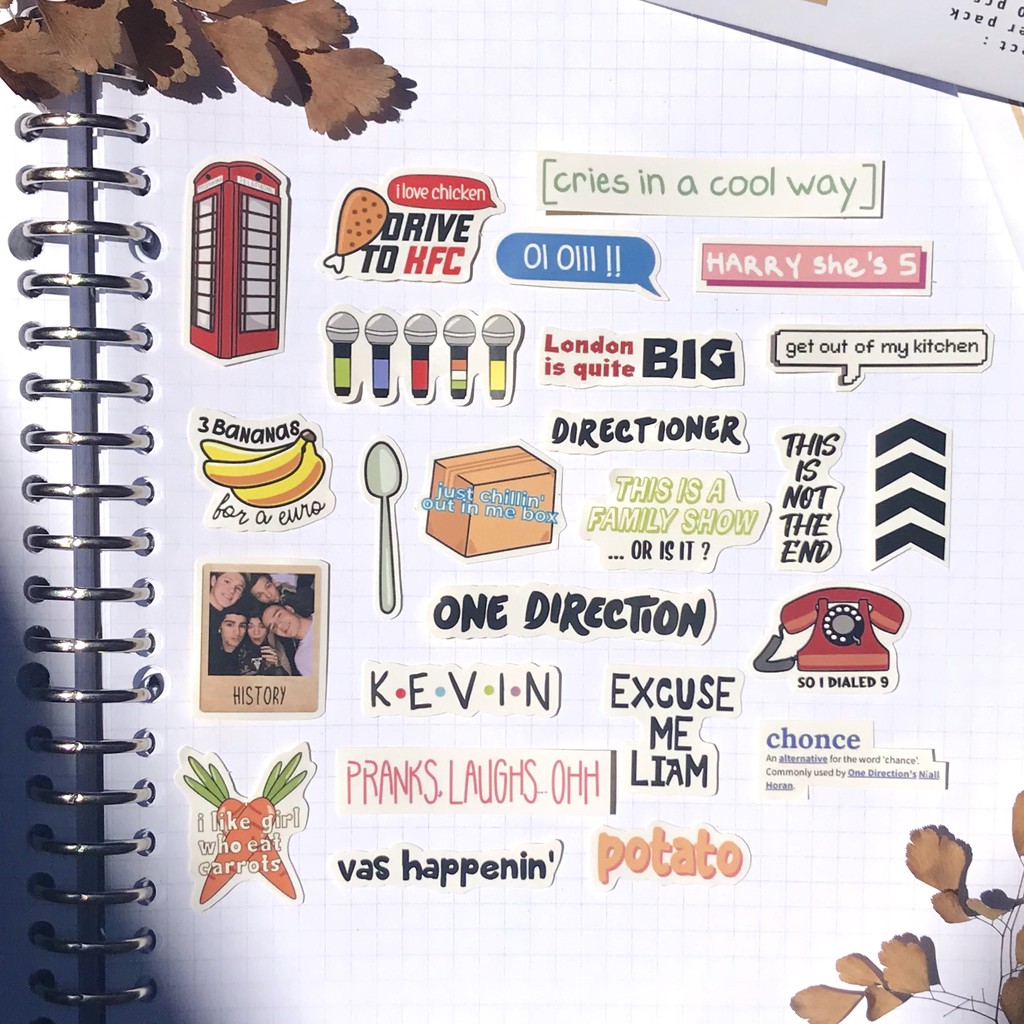 ct :
er pack
TELEPHONE
i love chicken
DRIVE
TO KFC
[cries in a cool way]
OI OIII !!
HARRY she's 5
London
is quite BIG
get out of my kitchen
3 BANANAS
for a euro
just chillin'
out in me box
DIRECTIONER
THIS IS A
FAMILY SHOW
... OR IS IT ?
THIS
IS
NOT
THE
END
HISTORY
ONE DIRECTION
SO I DIALED 9
K•E•V•I•N
EXCUSE
ME
LIAM
chonce
An alternative for the word 'chance'.
Commonly used by One Direction's Niall
Horan.
i like girl
who eat
carrots
PRANKS, LAUGHS... OHH
vas happenin'
potato